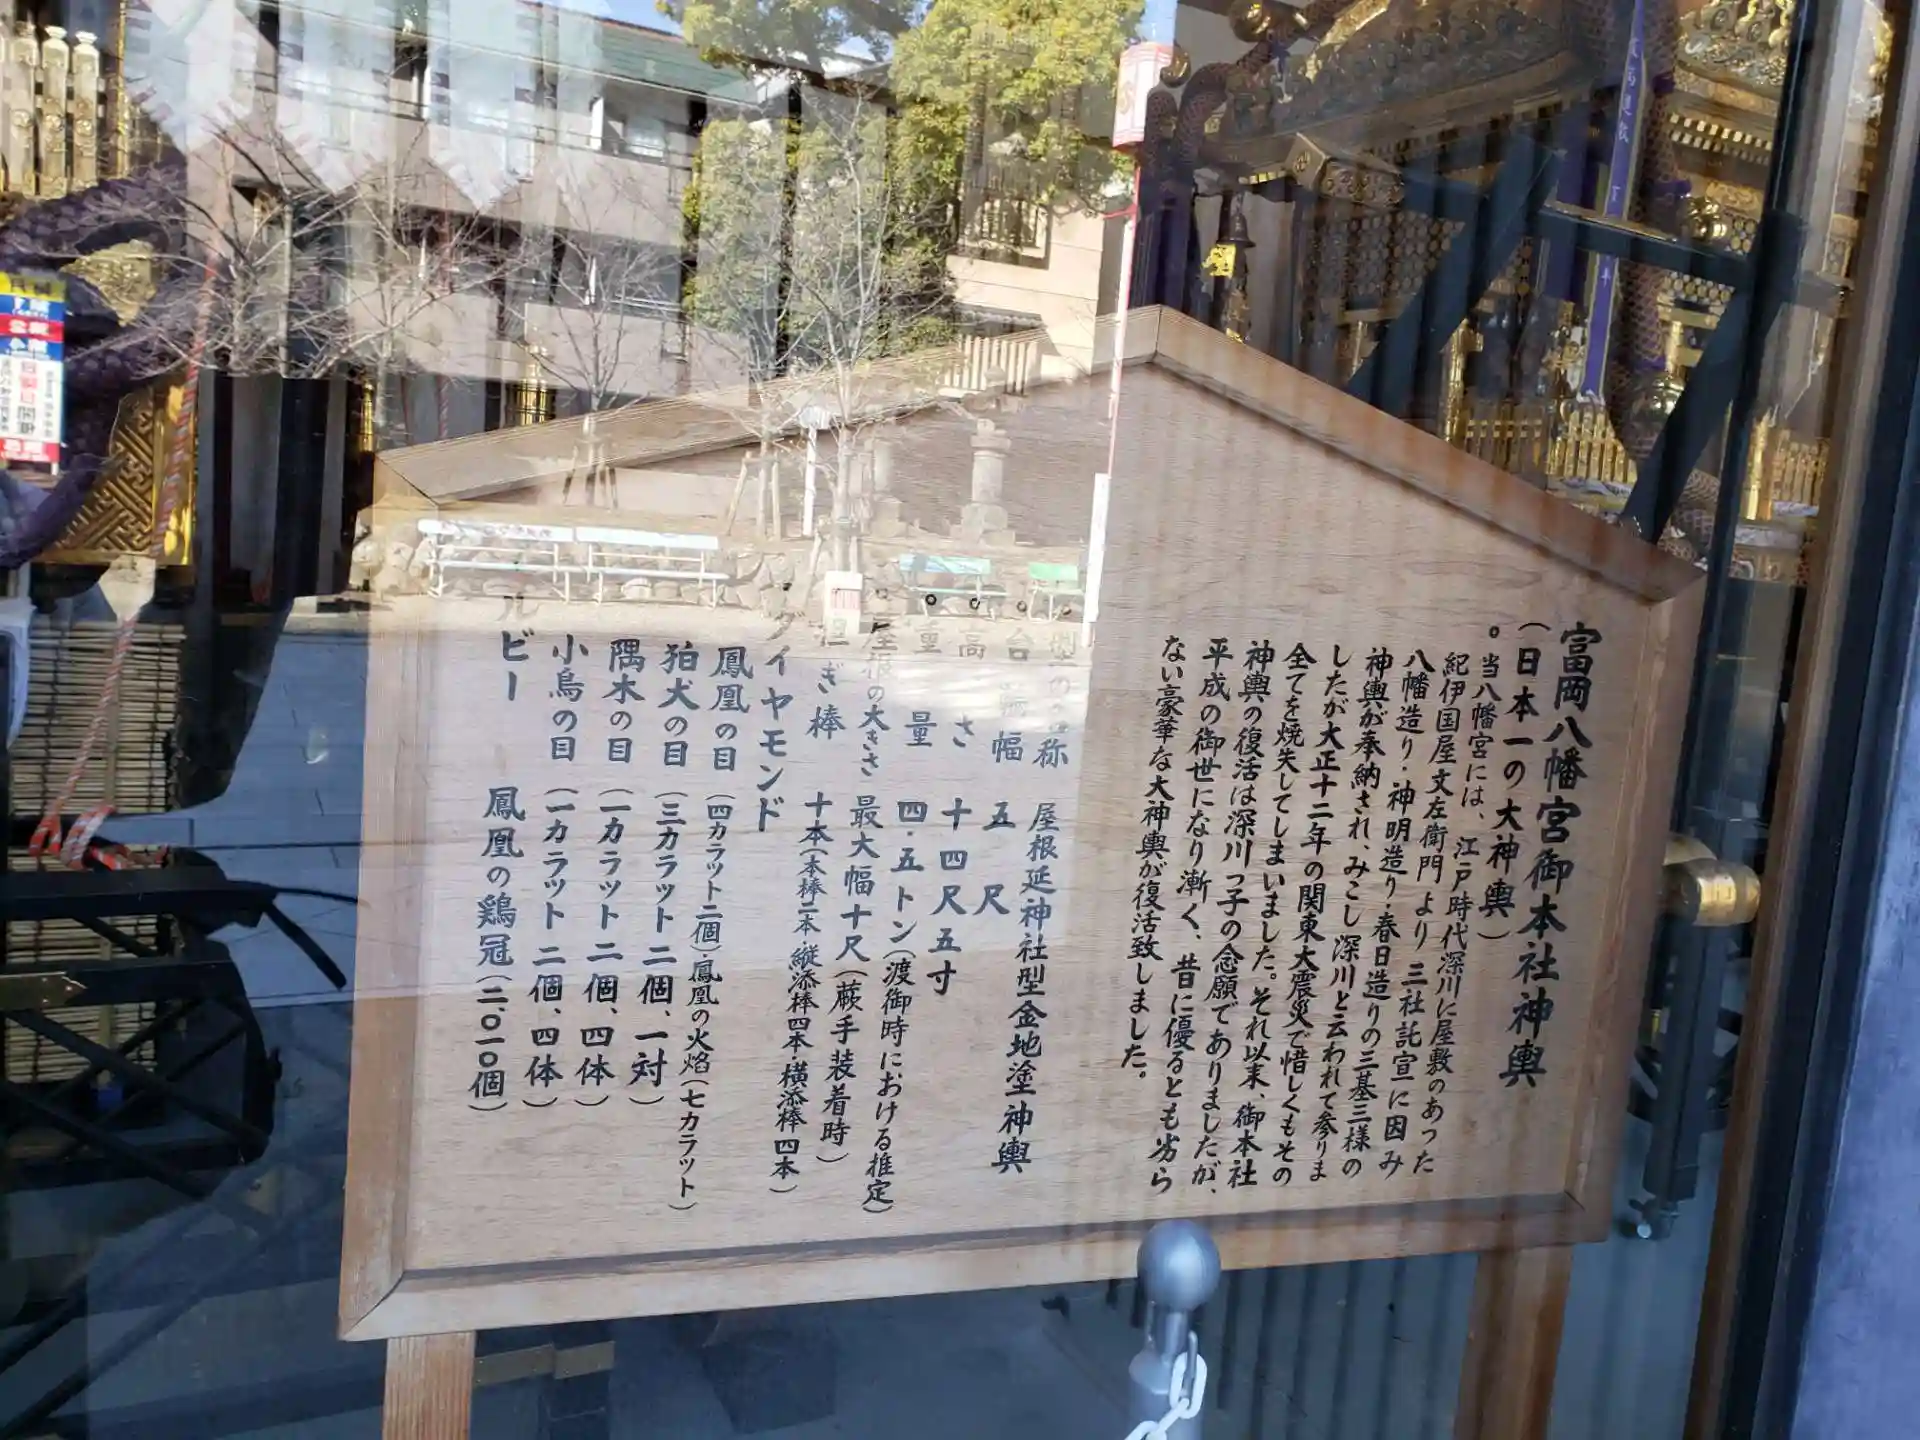 富岡八幡宮御本社神輿
(日本一の大神輿)
。当八幡宮には、江戸時代深川に屋敷のあった
紀伊国屋文左衛門より三社託宣に因み
八幡造り・神明造り・春日造りの三基三様の
神輿が奉納され、みこし深川と云われて参りま
したが大正十二年の関東大震災で惜しくもその
全てを焼失してしまいました。それ以来、御本社
神輿の復活は深川っ子の念願でありましたが、
平成の御世になり漸く、昔に優るとも劣ら
ない豪華な大神輿が復活致しました。
型の名称 屋根延神社型金地塗神輿
台輪幅 五尺
。高さ 十四尺五寸
。重量 四・五トン(渡御時における推定)
・屋根の大きさ 最大幅十尺(蕨手装着時)
担ぎ棒 十本(本棒二本・縦添棒四本・横添棒四本)
・ダイヤモンド
鳳凰の目 (四カラット二個)・鳳凰の火焰(七カラット)
狛犬の目 (三カラット二個、一対)
隅木の目 (一カラット二個、四体)
小鳥の目 (一カラット二個、四体)
・ルビー 鳳凰の鶏冠(二、〇一〇個)